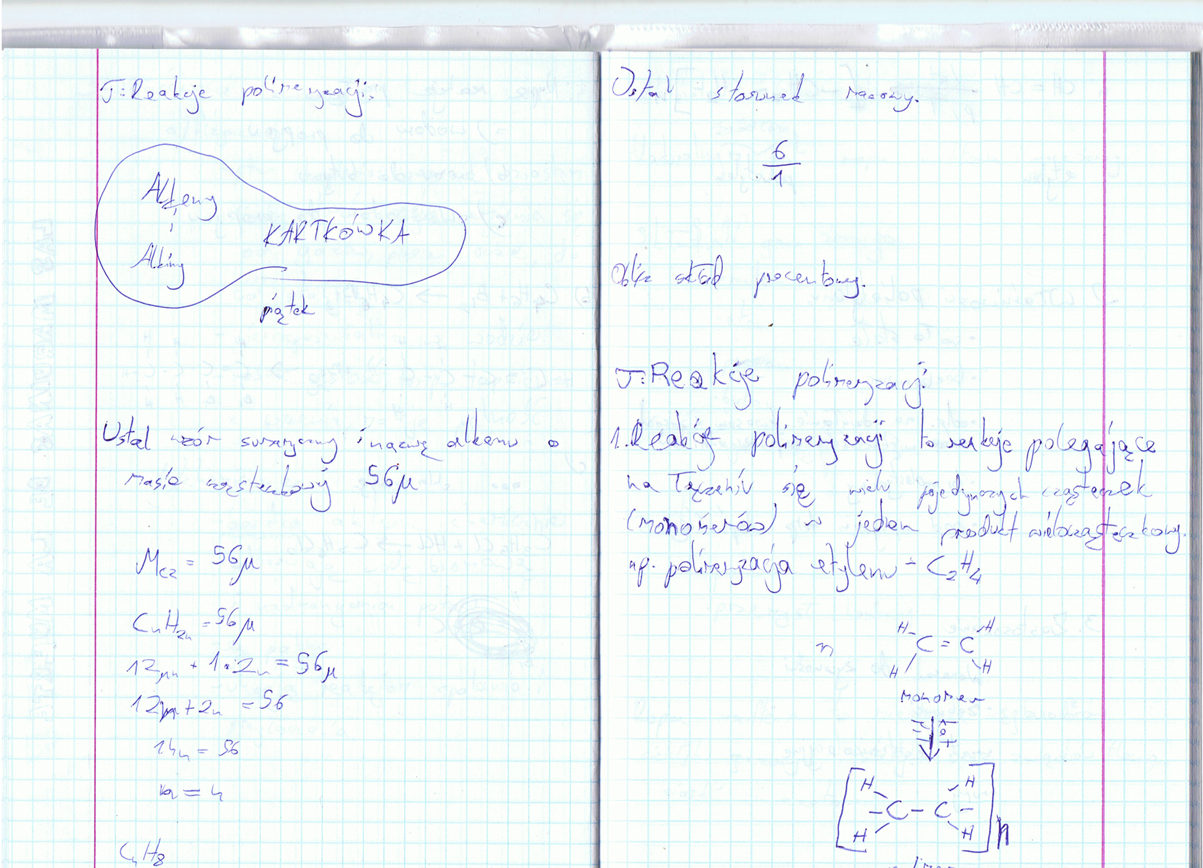 T: Reakcje polimeryzacji.
Alkeny
Alkiny
KARTKÓWKA
piątek
Ustal wzór sumaryczny i nazwę alkenu o
masie cząsteczkowej 56μ
M = 56μ
CnH2n = 56μ
12μn + 1·2n = 56μ
12μn + 2n = 56
14n = 56
n = 4
C4H8
Ustal stosunek masowy.
6
1
Oblicz skład procentowy.
T: Reakcje polimeryzacji
1. Reakcje polimeryzacji to reakcje polegające
na łączeniu się wielu pojedynczych cząsteczek
(monomerów) w jeden produkt wielocząsteczkowy.
np. polimeryzacja etylenu - C2H4
n
H H
C = C
H H
monomer
H H
- C - C -
H H
n